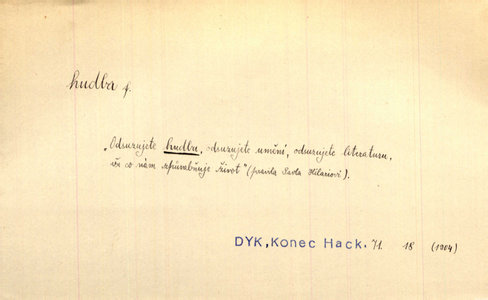 hudba f.
„Odsuzujete hudbu, odsuzujete umění, odsuzujete literaturu,
vše co nám způvabňuje život" (pravila Pavla Hilariovi).
DYK, Konec Hack. 71. 18 (1904)